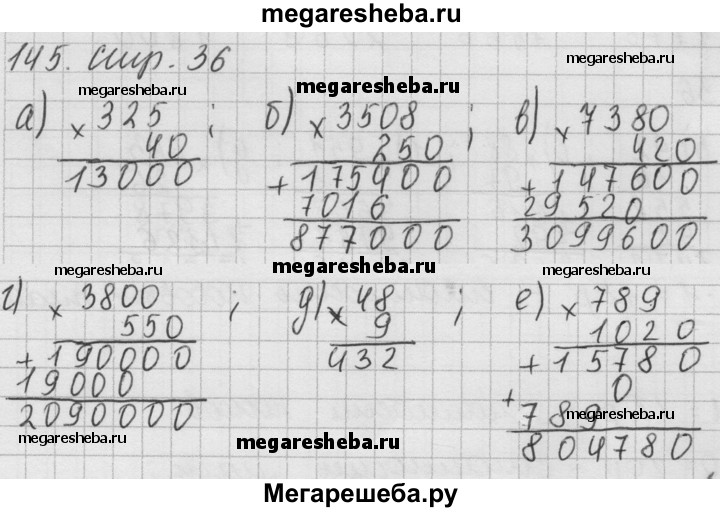 megaresheba.ru
145. стр. 36
megaresheba.ru
megaresheba.ru
megaresheba.ru
а) × 325 ;
40
13000
б) × 3508 ;
250
+ 175400
7016
877000
в) × 7380
420
+ 147600
29520
3099600
megaresheba.ru
megaresheba.ru
megaresheba.ru
г) × 3800 ;
550
+ 190000
19000
2090000
д) × 48 ;
9
432
е) × 789
1020
+ 15780
0
+ 789
804780
megaresheba.ru
megaresheba.ru
megaresheba.ru
Мегарешеба.ру